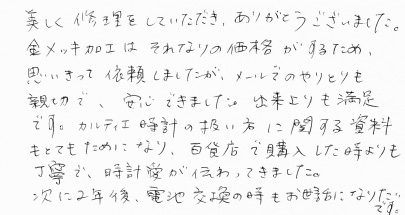 美しく修理をしていただき、ありがとうございました。
金メッキ加工はそれなりの価格がするため、
思いきって依頼しましたが、メールでのやりとりも
親切で、安心できました。出来上りも満足
です。カルティエ時計の扱い方に関する資料
もとてもためになり、百貨店で購入した時よりも
丁寧で、時計愛が伝わってきました。
次に2年後、電池交換の時もお世話になりたい
です。